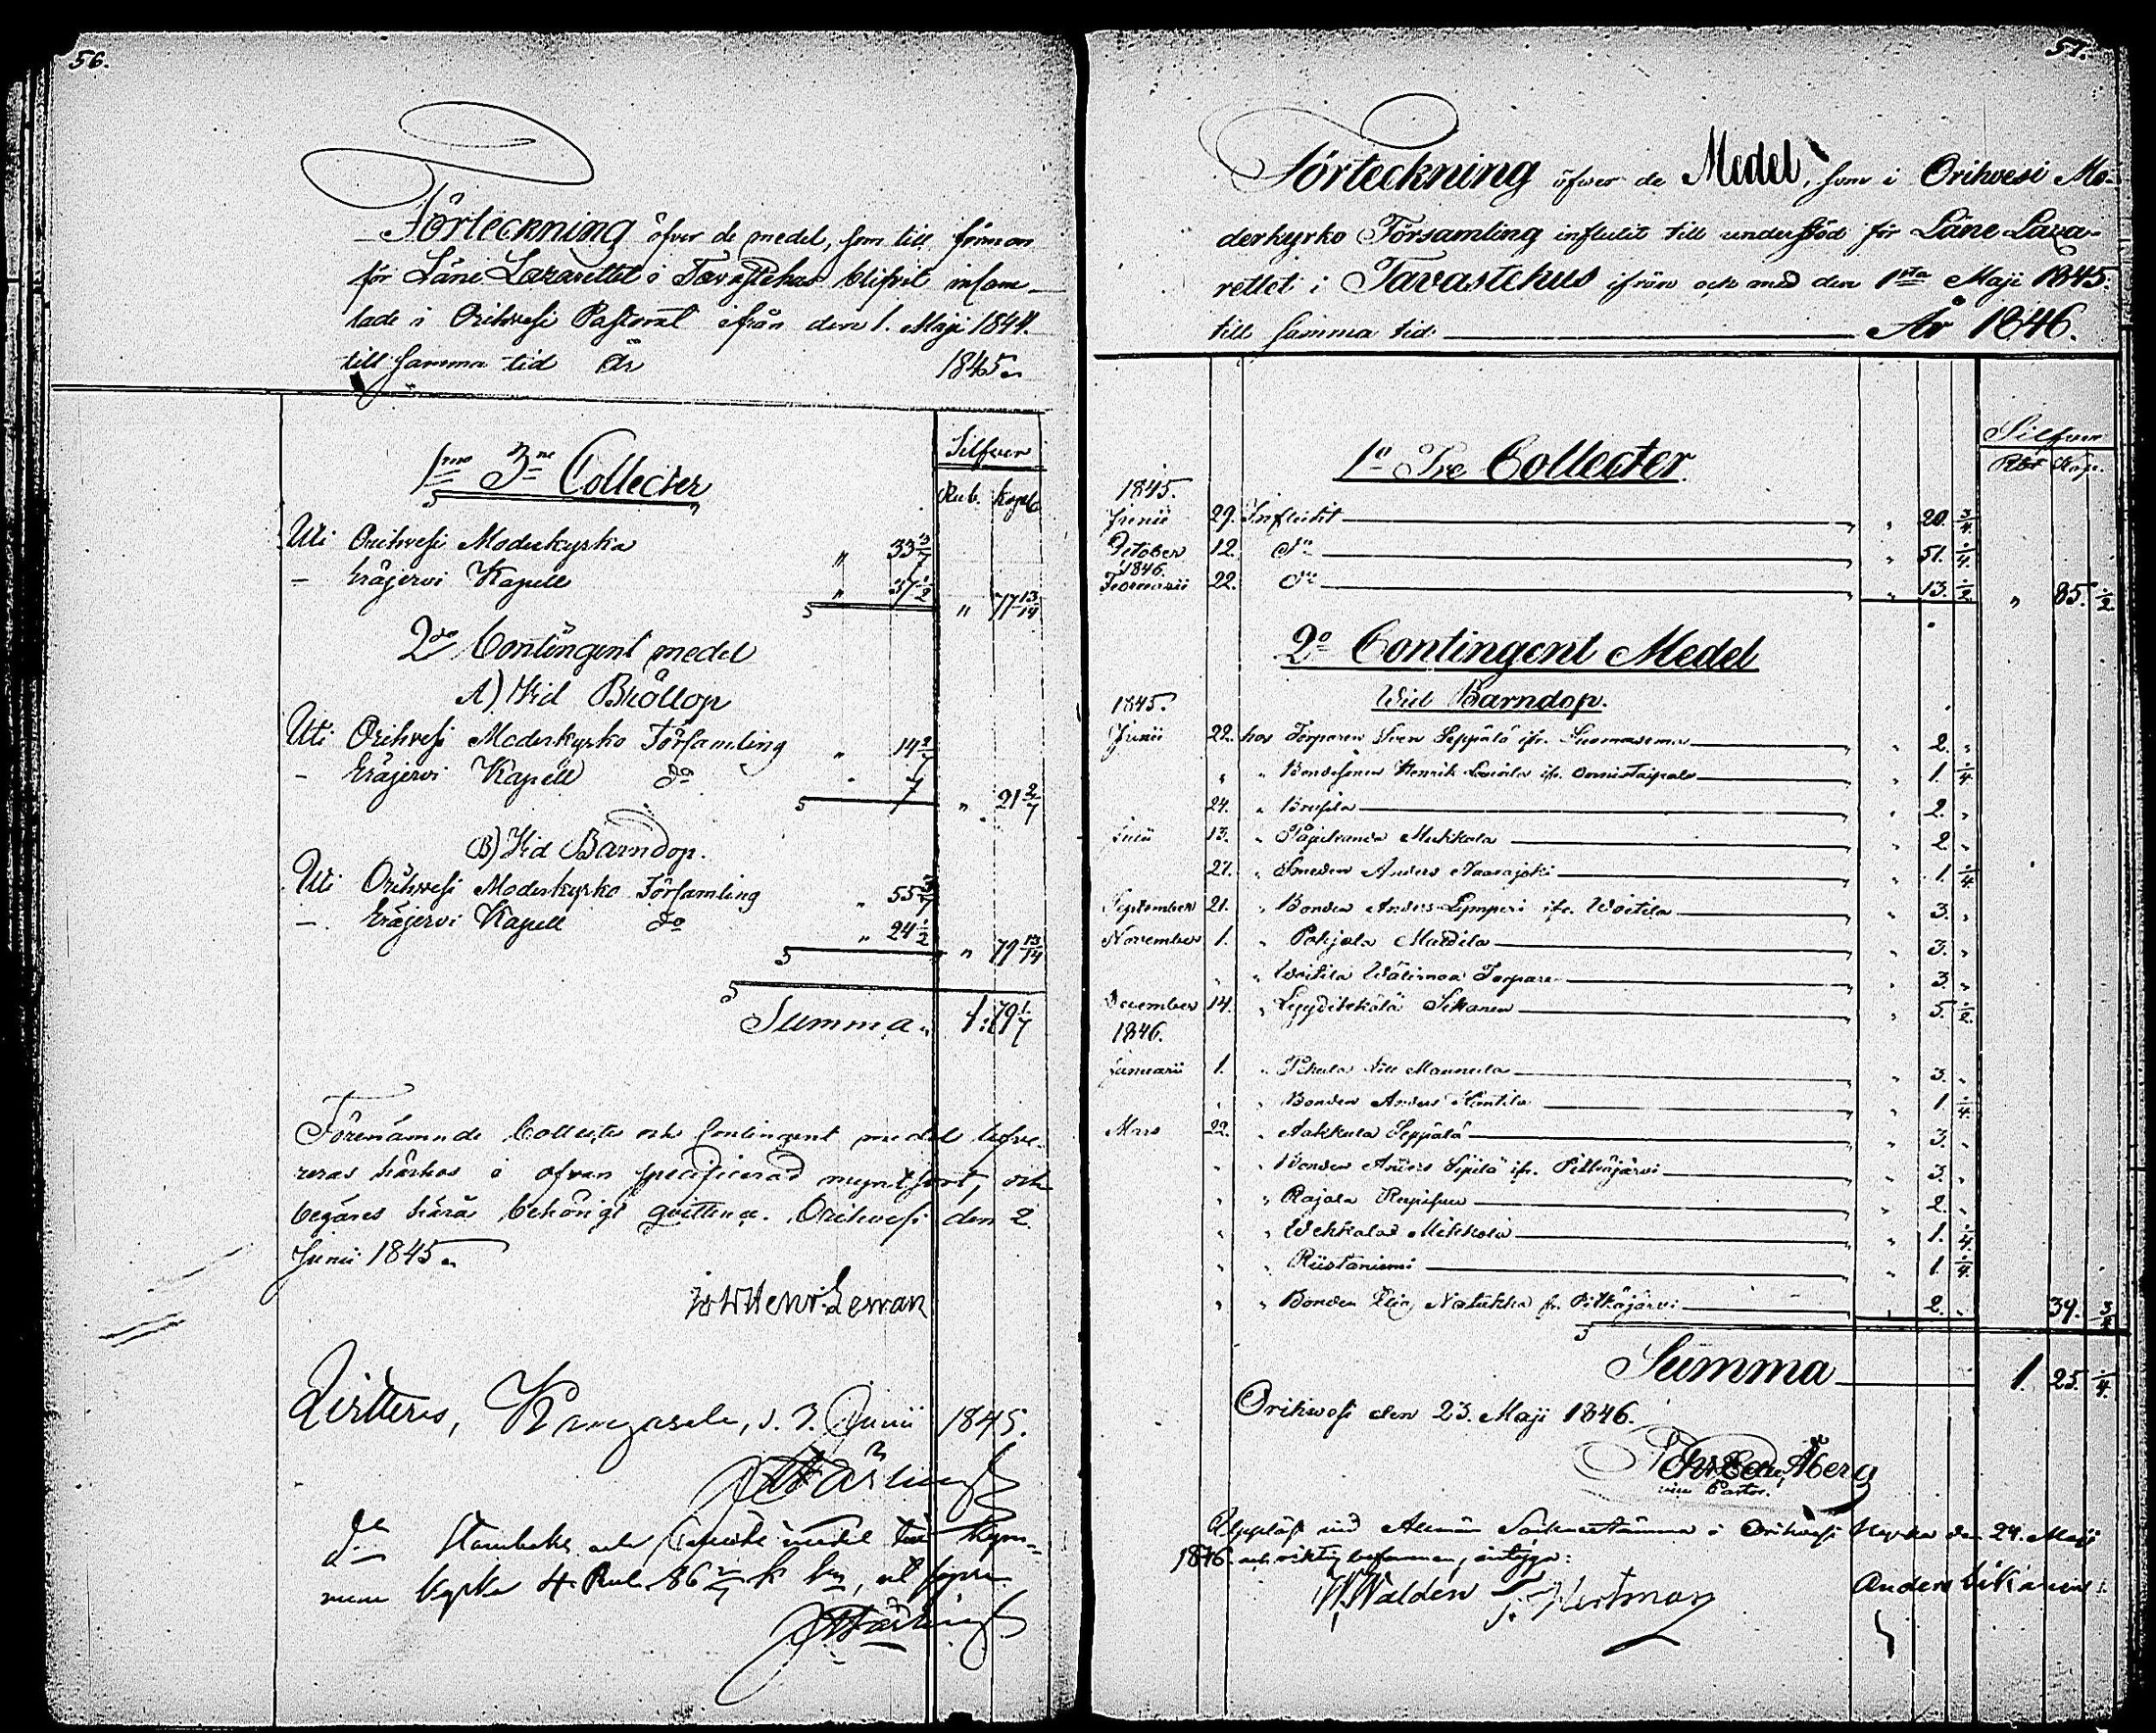 56.
Förteckning öfver de medel, som till förmon
för Läns Lazarettet i Tavastehus blifvit insam-
lade i Orihvesi Pastorat ifrån den 1. Maji 1844.
till samma tid År 1845.
Silfver
Rub. kopek
1mo 3ne Collecter
Uti Orihvesi Moderkyrka " 33 3/7
— Eräjervi Kapell " 37 1/2 " 77 13/14
2do Contingent medel
A) Vid Bröllop
Uti Orihvesi Moderkyrko Församling " 14 2/7
— Eräjervi Kapell do " 7 " 21 2/7
B) Vid Barndop.
Uti Orihvesi Moderkyrko Församling " 55 3/7
— Eräjervi Kapell do " 24 1/2 " 79 13/14
Summa. 1. 79 1/7
Förenämnde Collect och Contingent medel lefve-
reras härhos i ofvan specificerad myntsort, och
begäres härå behörigt quittence. Orihvesi den 2.
Junii 1845.
Henr. Lerran
Qvitteras, Kangasala, d. 3. Junii 1845.
do Stamboks och
Kyrka 4 Rub. 86 2/7 k
57.
Förteckning öfwer de Medel, som i Orihvesi Mo-
derkyrko Församling influtit till understöd för Läns Laza-
rettet i Tavastehus ifrån och med den 1sta Maji 1845.
till samma tid År 1846.
Silfver
Rbl Kop.
1o Tre Collecter.
1845.
Junii 29. Influtit " 20. 3/4.
October 12. do " 51. 1/4.
1846.
Februarii 22. do " 13. 1/2. " 85. 1/2.
2o Contingent Medel
1845. Wid Barndop.
Junii 22. hos Torparen Sven Seppälä ifr. Suomasema " 2. "
" " Bondesonen Henrik ifr. Onnistaipale " 1. 1/4
24. " " 2. "
Julii 13. " Mukkala " 2. "
27. " Smeden Anders " 1. 1/4
September 21. " Bonden Anders Lymperi ifr. Woitila " 3. "
November 1. " Pohjola Mattila " 3. "
" " Woitila Wälimaa Torpare " 3. "
December 14. " Sikanen " 5. 1/2.
1846.
Januarii 1. " Mannula " 3. "
" " Bonden Anders " 1. 1/4.
Mars 22. " Aakkula Seppälä " 3. "
" " Bonden Anders Sipilä ifr. Pitkäjärvi " 3. "
" " Rajala " 2. "
" " Wehkalax Mikkola " 1. 1/4.
" " Riistaniemi " 1. 1/4.
" " Bonden Elia fr. Pitkäjärvi " 2. " 39. 3/4
Summa 1. 25. 1/4.
Orihvesi den 23. Maji 1846.
Åberg
vice Pastor.
Uppläst vid Allmän Sockenstämma i Orihvesi Kyrka den 24. Maji
1846. och riktig befunnen, intyga:
W. Walden Anders Likanen